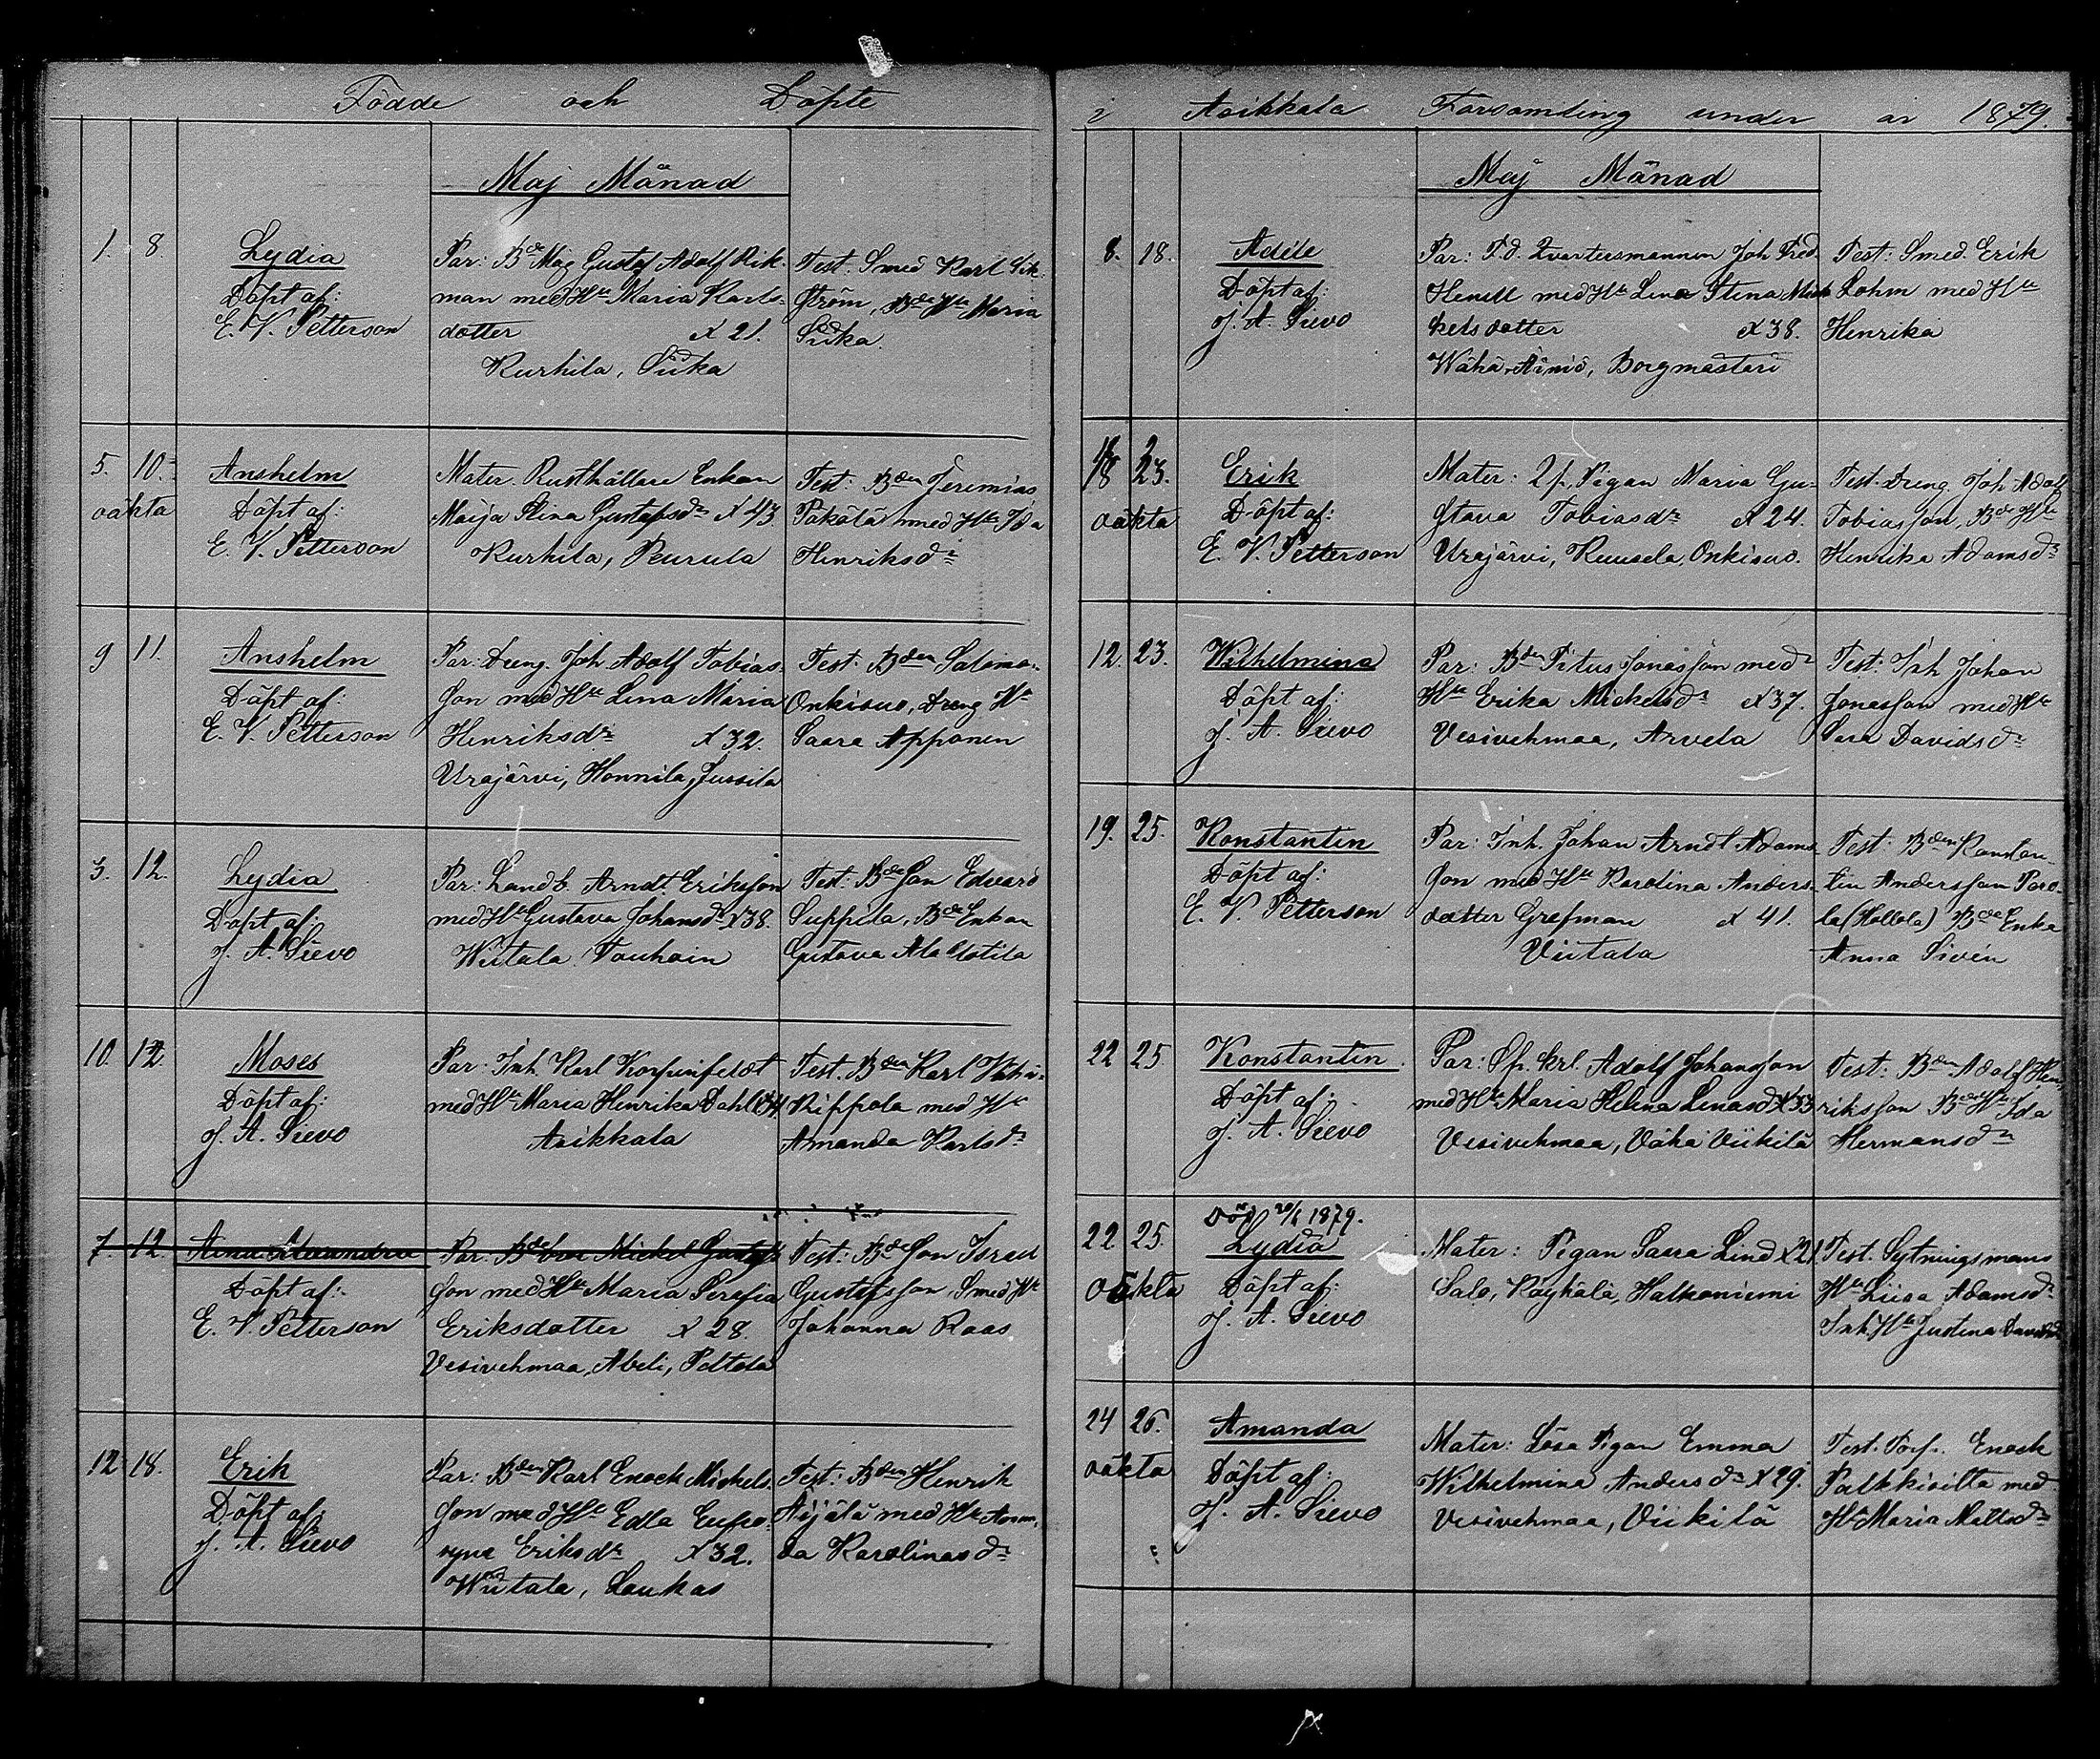 Födde och Döpte
Maj Månad
1. 8. Lydia
Döpt af:
E. V. Petterson
Par: Bde Måg Gustaf Adolf Rik-
man med Hu Maria Karls-
dotter x 21.
Kurhila, Siika
Test. Smed Karl Sik-
ström, Bde Hu Maria
Siika.
5. 10. Anshelm
oäkta Döpt af:
E. V. Petterson
Mater. Rusthållare Enkan
Maija Stina Gustafsdr x 43
Kurhila, Peurula
Test: Bden Jeremias
Päkälä med Hu Ida
Henriksdr
9 11. Anshelm
Döpt af:
E. V. Petterson
Par: Dreng. Joh Adolf Tobias-
son med Hu Lina Maria
Henriksdr x 32.
Urajärvi, Honnila, Jussila
Test: Bden Salomo.
Onkisuo, Dreng Hu
Saara Apponen
3. 12. Lydia
Döpt af:
J. A. Sievo
Par: Landb. Arndt Eriksson
med Hu Gustava Johansdr x 38.
Wiitala Vouhoin
Test: Bde Son Edvard
Suppila, Bde Enkan
Gustava Ala Uotila
10. 12. Moses
Döpt af:
J. A. Sievo
Par: Inh. Karl
med Hu Maria Henrika Dahl
Asikkala
Test. Bden Karl
Kippola med Hu
Amanda Karlsdr
7. 12.
Döpt af:
E. V. Petterson
Par: Michel Gustafs
son med Hu Maria Serafia
Eriksdotter x 28.
Vesivehmaa, Abeli, Poltola
Test: Bde Son Israel
Gustafsson, Smed Hu
Johanna Raas
12 18. Erik
Döpt af:
J. A. Sievo
Par: Bden Karl Enock Mickels-
son med Hu Edla Eufro-
syne Eriksdr x 32.
Wiitala, Laukas
Test: Bden Henrik
Äijälä med Hu Aman-
da Karolinasdr
i Asikkala Församling under år 1879.
Maj Månad
8. 18. Adéle
Döpt af:
J. A. Sievo
Par: F.d. Qvartersmannen Joh Fred.
Henell med Hu Lena Stina Mick
kelsdotter x 38.
Wähä-Äiniö, Borgmästari
Test: Smed. Erik
Lohm med Hu
Henrika
18 23. Erik
oäkta Döpt af:
E. V. Petterson
Mater: Pigan Maria Gu-
stava Tobiasdr x 24.
Urajärvi, Ruusela, Onkisuo.
Test. Dreng. Joh Adolf
Tobiasson, Bde Hu
Henrika Adamsdr
12. 23. Wilhelmina
Döpt af:
J. A. Sievo
Par: Bden Pitus Jonasson med
Hu Erika Mickelsdr x 37.
Vesivehmaa, Arvela
Test: Inh Johan
Jonasson med Hu
Sara Davidsdr
19. 25. Konstantin
Döpt af:
E. V. Petterson
Par: Inh. Johan Arndt Adams
son med Hu Karolina Anders-
dotter Grefman x 41.
Viitala
Test: Bden Konstan-
tin Andersson Paro-
la (Hollola) Bde Enka
Anna Sivén
22 25. Konstantin
Döpt af:
J. A. Sievo
Par: Sp. krl. Adolf Johansson
med Hu Maria Helena Linasdr x 33
Vesivehmaa, Vähä Viikilä
Test: Bden Adolf Hen-
riksson Bde Hu Ida
Hermansdr
Död 20/6 1879.
22 25. Lydia
oäkta Döpt af:
J. A. Sievo
Mater: Pigan Saara Lind x 21
Salo, Räyhälä, Halkoniemi
Test. Sytningsmans
Hu Liisa Adamsdr
Inh. Hu Justina
24 26. Amanda
oäkta Döpt af:
J. A. Sievo
Mater: Lösa Pigan Emma
Wilhelmina Andersdr x 29.
Vesivehmaa, Viikilä
Test. Torp. Enock
Palkkisilta med
Hu Maria Mattsdr